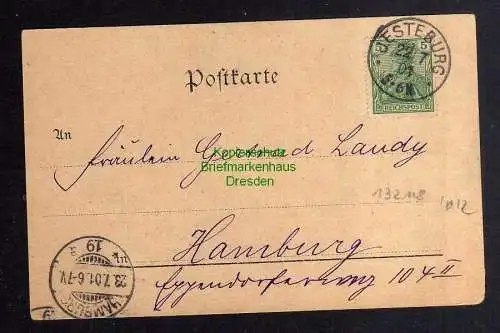 JESTEBURG
22 7
01
5-6N
5
REICHSPOST
Postkarte
An
Fräulein Gertrud Landy
Kopierschutz
Briefmarkenhaus
Dresden
132118
Hamburg
Eppendorferweg 104 II
19
23.7.01.6-7V.
HAMBURG